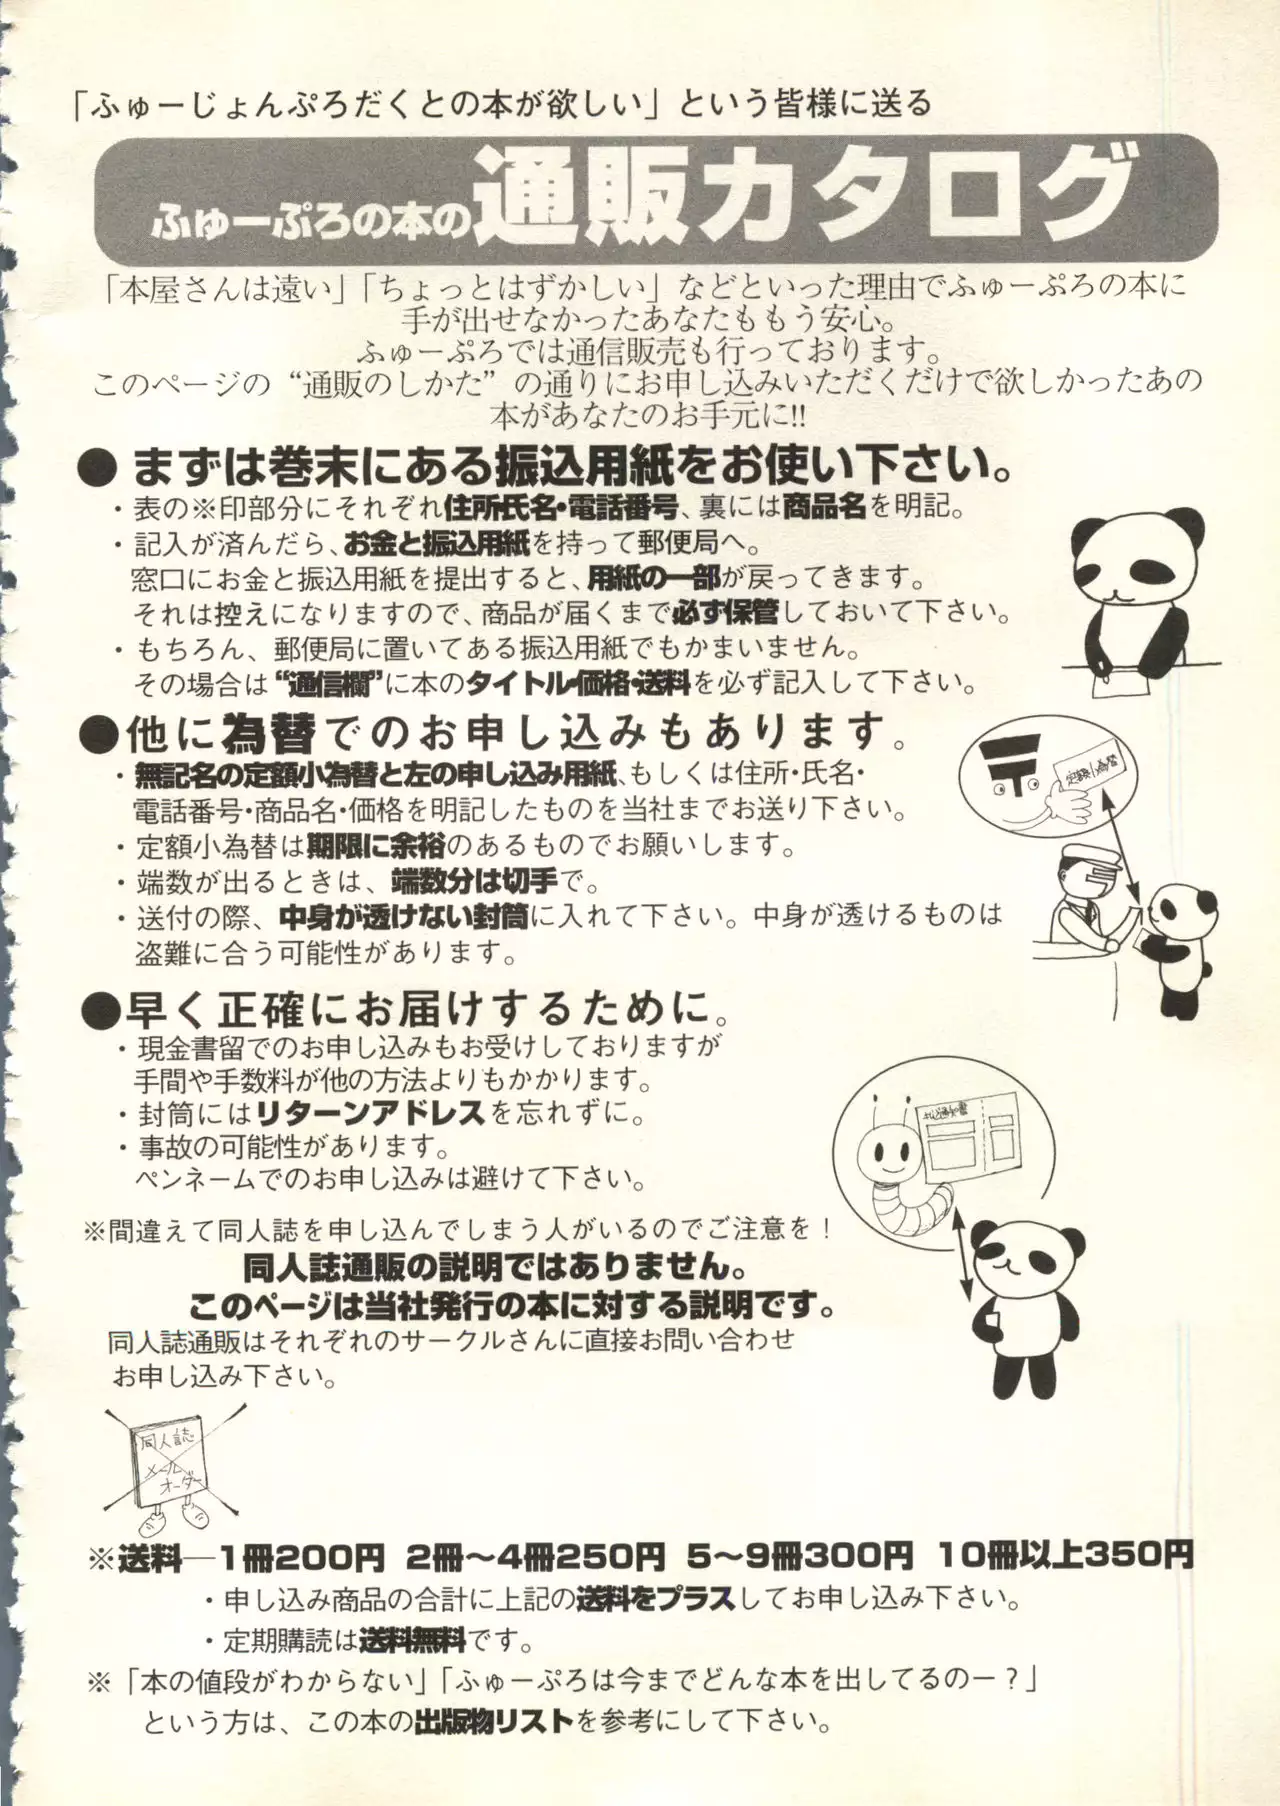 「ふゅーじょんぷろだくとの本が欲しい」という皆様に送る
ふゅーぷろの本の通販カタログ
「本屋さんは遠い」「ちょっとはずかしい」などといった理由でふゅーぷろの本に
手が出せなかったあなたももう安心。
ふゅーぷろでは通信販売も行っております。
このページの“通販のしかた”の通りにお申し込みいただくだけで欲しかったあの
本があなたのお手元に!!
●まずは巻末にある振込用紙をお使い下さい。
・表の※印部分にそれぞれ住所・氏名・電話番号、裏には商品名を明記。
・記入が済んだら、お金と振込用紙を持って郵便局へ。
窓口にお金と振込用紙を提出すると、用紙の一部が戻ってきます。
それは控えになりますので、商品が届くまで必ず保管しておいて下さい。
・もちろん、郵便局に置いてある振込用紙でもかまいません。
その場合は“通信欄”に本のタイトル・価格・送料を必ず記入して下さい。
●他に為替でのお申し込みもあります。
・無記名の定額小為替と左の申し込み用紙、もしくは住所・氏名・
電話番号・商品名・価格を明記したものを当社までお送り下さい。
定額小為替
・定額小為替は期限に余裕のあるものでお願いします。
・端数が出るときは、端数分は切手で。
・送付の際、中身が透けない封筒に入れて下さい。中身が透けるものは
盗難に合う可能性があります。
●早く正確にお届けするために。
・現金書留でのお申し込みもお受けしておりますが
手間や手数料が他の方法よりもかかります。
・封筒にはリターンアドレスを忘れずに。
・事故の可能性があります。
ペンネームでのお申し込みは避けて下さい。
払込通知書
※間違えて同人誌を申し込んでしまう人がいるのでご注意を！
同人誌通販の説明ではありません。
このページは当社発行の本に対する説明です。
同人誌通販はそれぞれのサークルさんに直接お問い合わせ
お申し込み下さい。
同人誌
メール
オーダー
※送料─1冊200円 2冊〜4冊250円 5〜9冊300円 10冊以上350円
・申し込み商品の合計に上記の送料をプラスしてお申し込み下さい。
・定期購読は送料無料です。
※「本の値段がわからない」「ふゅーぷろは今までどんな本を出してるのー？」
という方は、この本の出版物リストを参考にして下さい。